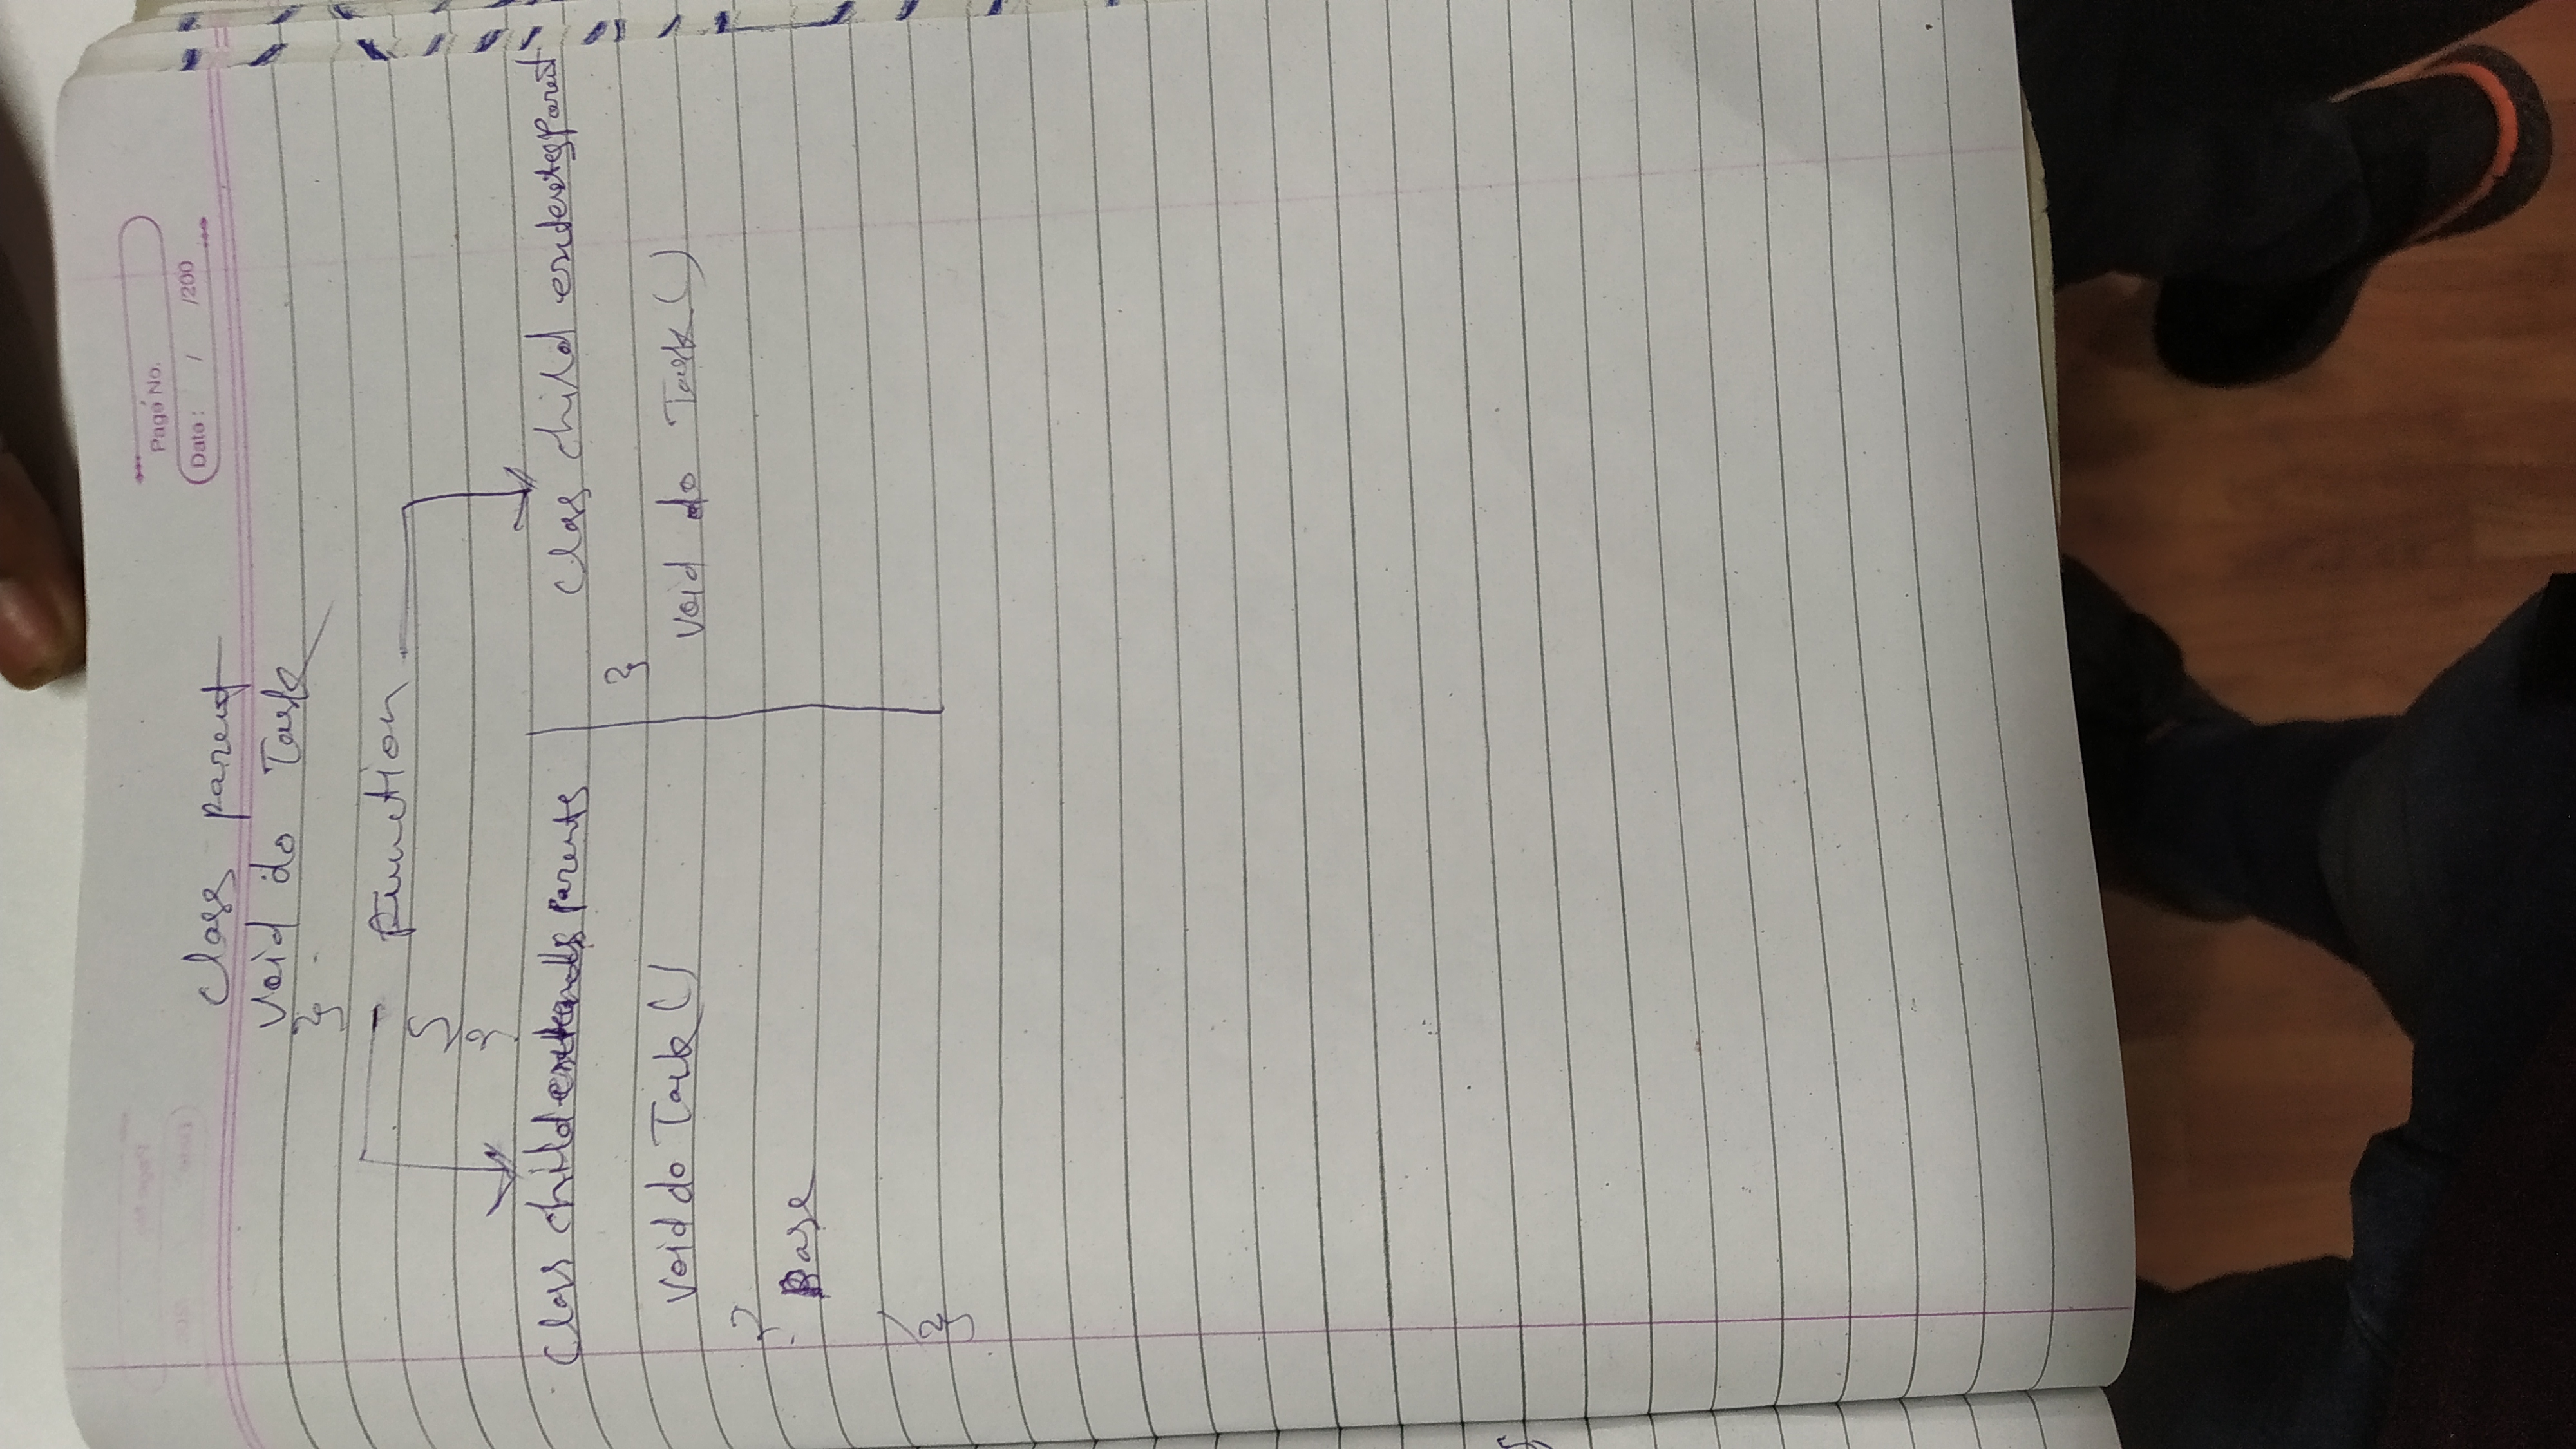 Page No.
Date : / /200
Class parent
Void do Task
}
Function
{
}
Class child extends parents
Void do Task ()
{
Base
}
Clas child extends parent
}
Void do Task ()